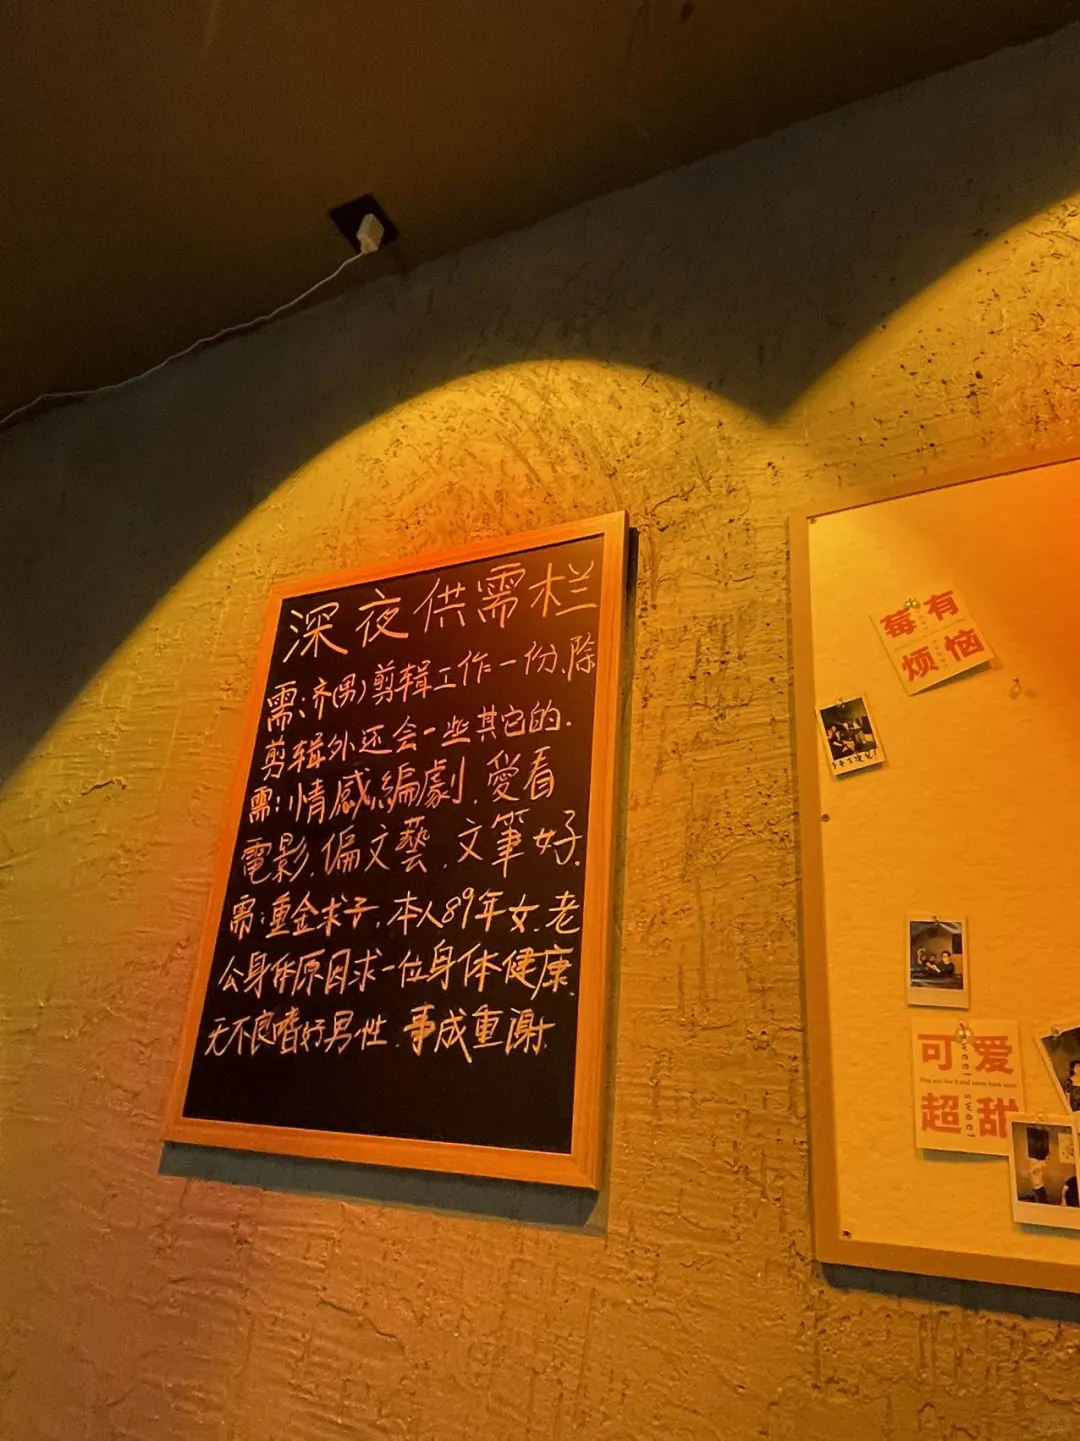 深夜供需栏
需:齐(男)剪辑工作一份.除
剪辑外还会一些其它的.
需:情感編劇.愛看
電影.偏文藝.文筆好.
需:重金求子.本人89年女.老
公身体原因求一位身体健康.
无不良嗜好男性.事成重谢.
莓有
烦恼
可爱
超甜
sweet
sweet